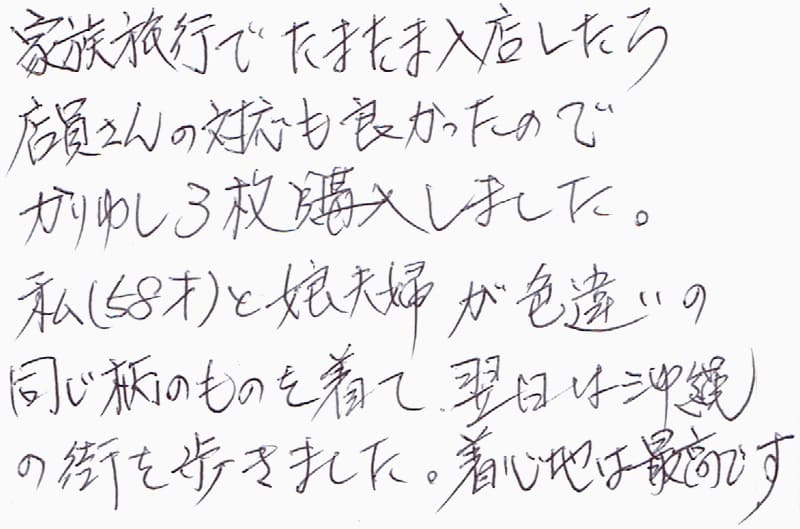 家族旅行でたまたま入店したら
店員さんの対応も良かったので
かりゆし3枚購入しました。
私(58才)と娘夫婦が色違いの
同じ柄のものを着て、翌日は沖縄
の街を歩きました。着心地は最高です